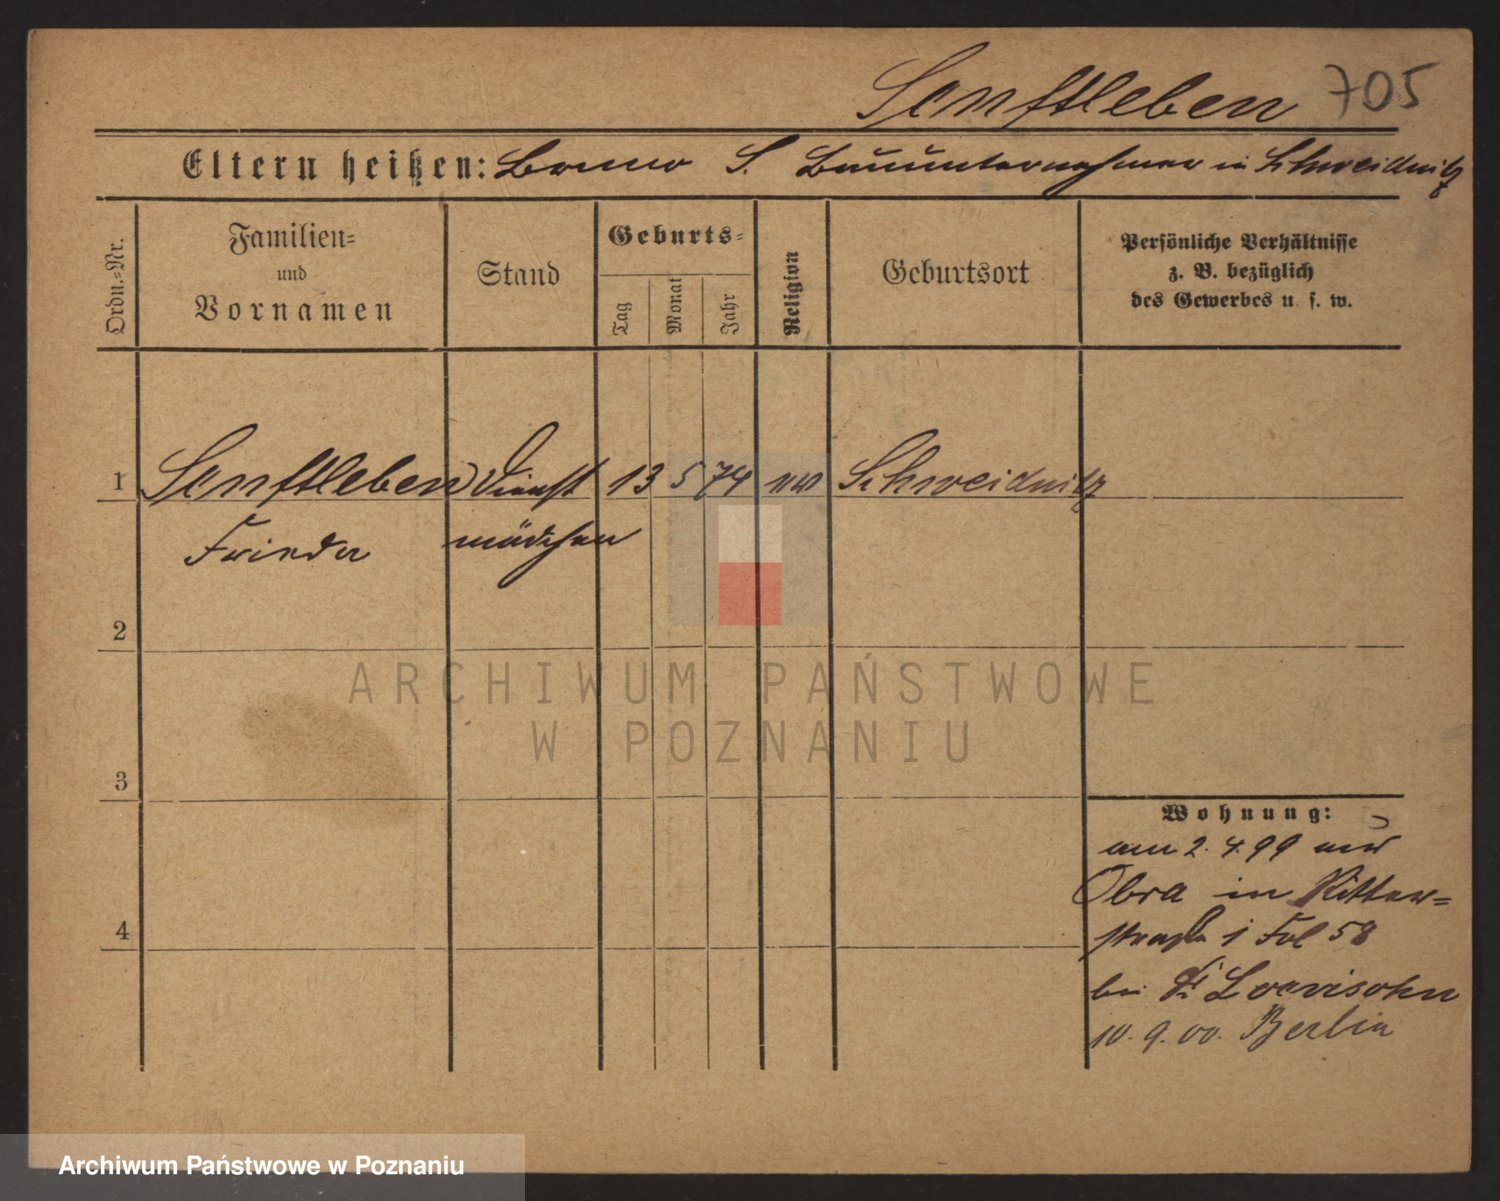 Senftleben 705
Eltern heißen: Bruno S. Bauunternehmer in Schweidnitz
Ordn.=Nr.
Familien=
und
Vornamen
Stand
Geburts=
Tag
Monat
Jahr
Religion
Geburtsort
Persönliche Verhältnisse
z. B. bezüglich
des Gewerbes u. s. w.
1 Senftleben Dienst 13 5 74 Schweidnitz
Frieda mädchen
2
3
4
Wohnung:
am 2. 4. 99 aus
Obra in Ritter=
straße 1 Fol 58
bei Loevisohn
10. 9. 00. Berlin
ARCHIWUM PAŃSTWOWE
W POZNANIU
Archiwum Państwowe w Poznaniu